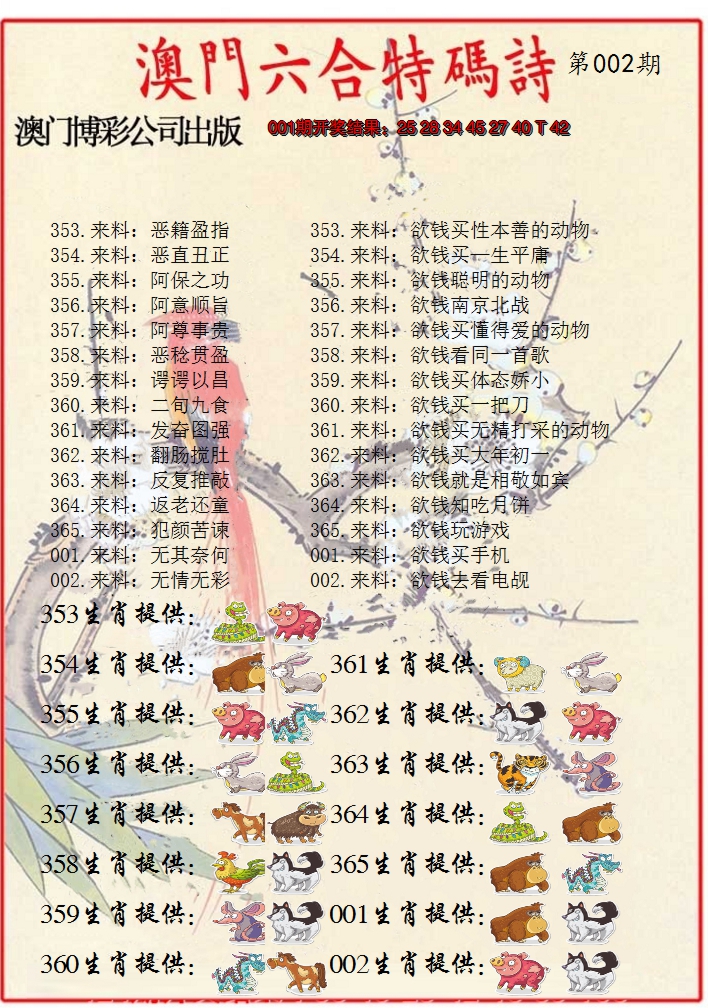 澳門六合特碼詩 第002期
澳门博彩公司出版 001期开奖结果：25 28 34 45 27 40 T 42
353.来料：恶籍盈指 353.来料：欲钱买性本善的动物
354.来料：恶直丑正 354.来料：欲钱买一生平庸
355.来料：阿保之功 355.来料：欲钱聪明的动物
356.来料：阿意顺旨 356.来料：欲钱南京北战
357.来料：阿尊事贵 357.来料：欲钱买懂得爱的动物
358.来料：恶稔贯盈 358.来料：欲钱看同一首歌
359.来料：谔谔以昌 359.来料：欲钱买体态娇小
360.来料：二旬九食 360.来料：欲钱买一把刀
361.来料：发奋图强 361.来料：欲钱买无精打采的动物
362.来料：翻肠搅肚 362.来料：欲钱买大年初一
363.来料：反复推敲 363.来料：欲钱就是相敬如宾
364.来料：返老还童 364.来料：欲钱知吃月饼
365.来料：犯颜苦谏 365.来料：欲钱玩游戏
001.来料：无其奈何 001.来料：欲钱买手机
002.来料：无情无彩 002.来料：欲钱去看电觇
353生肖提供：
354生肖提供： 361生肖提供：
355生肖提供： 362生肖提供：
356生肖提供： 363生肖提供：
357生肖提供： 364生肖提供：
358生肖提供： 365生肖提供：
359生肖提供： 001生肖提供：
360生肖提供： 002生肖提供：